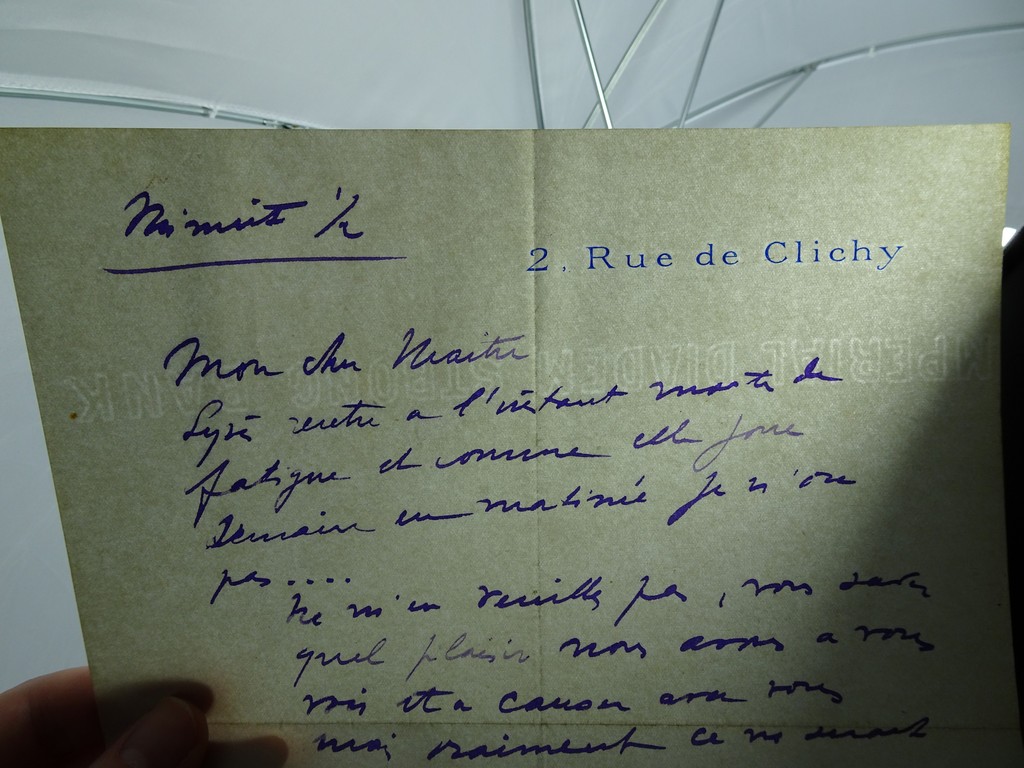 Minuit 1/2
2, Rue de Clichy
Mon cher Maitre
rentre a l'instant morte de
fatigue et comme elle joue
Demain en matinée je n'ose
pas....
Ne m'en veuillez pas, vous savez
quel plaisir nous avons a vous
voir et a causer avec vous
mais vraiment ce ne serait